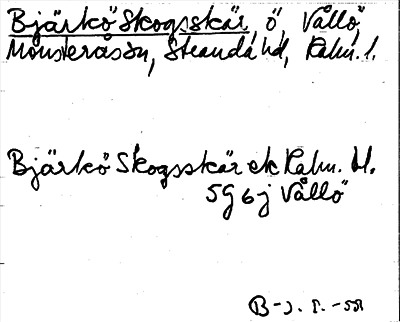 Bjärkö Skogsskär, ö, Vållö,
Mönsterås sn, Stranda hd, Kalm. l.
Bjärkö Skogsskär ek Kalm. bl.
5G 6j Vållö